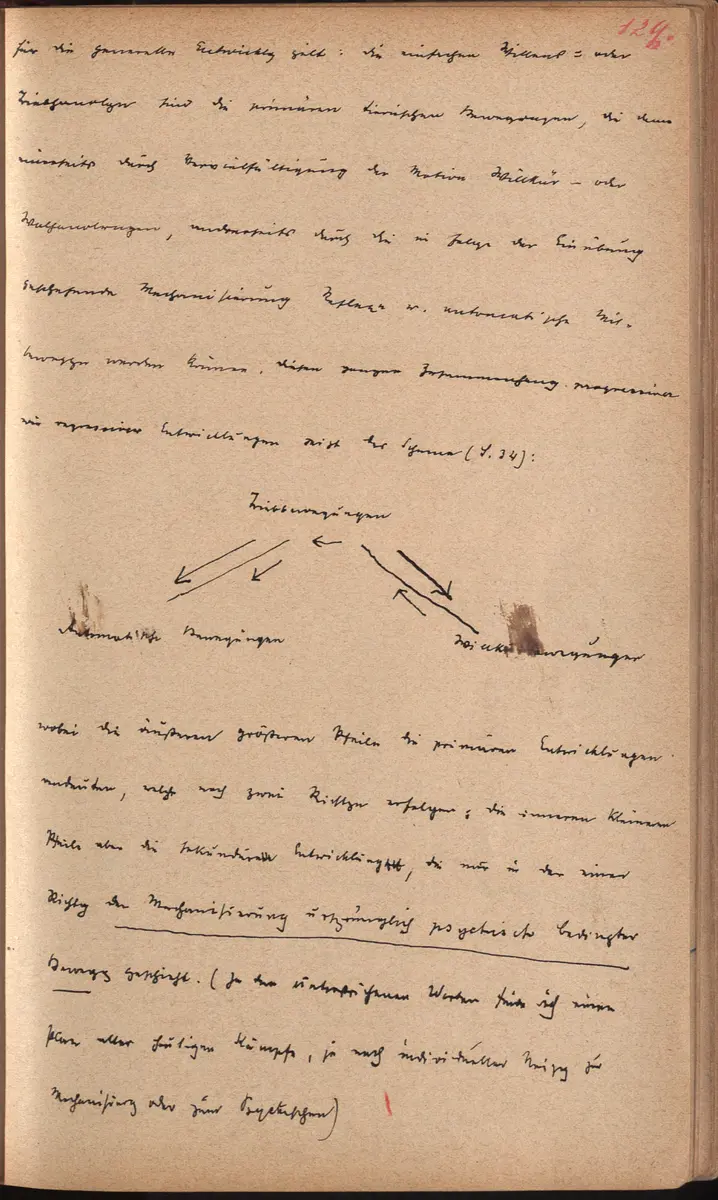 129.
für die generelle Entwicklg gilt: die einfachen Willens= oder
Triebhandlgn sind die primären tierischen Bewegungen, die dann
einerseits durch Vervielfältigung der Motive Willkür- oder
Wahlhandlungen, anderseits durch die in Folge der Einübung
Mechanisierung Reflexe u. automatische Mit-
beweggn werden können. Diesen ganzen Zusammenhang progressiver
wie regressiver Entwicklungen zeigt das Schema (S. 34):
Triebbewegungen
Automatische Bewegungen
Willkürbewegungen
wobei die äußeren größeren Pfeile die primären Entwicklungen
andeuten, welche nach zwei Richtgn erfolgen; die inneren kleineren
Pfeile aber die sekundären Entwicklung, die nur in der einen
Richtg der Mechanisierung ursprünglich psychisch bedingter
Bewegg geschieht. (In den unterstrichenen Worten finde ich einen
Plan aller heutigen Kämpfe, je nach individueller Neigg zur
Mechanisierg oder zum Psychischen)